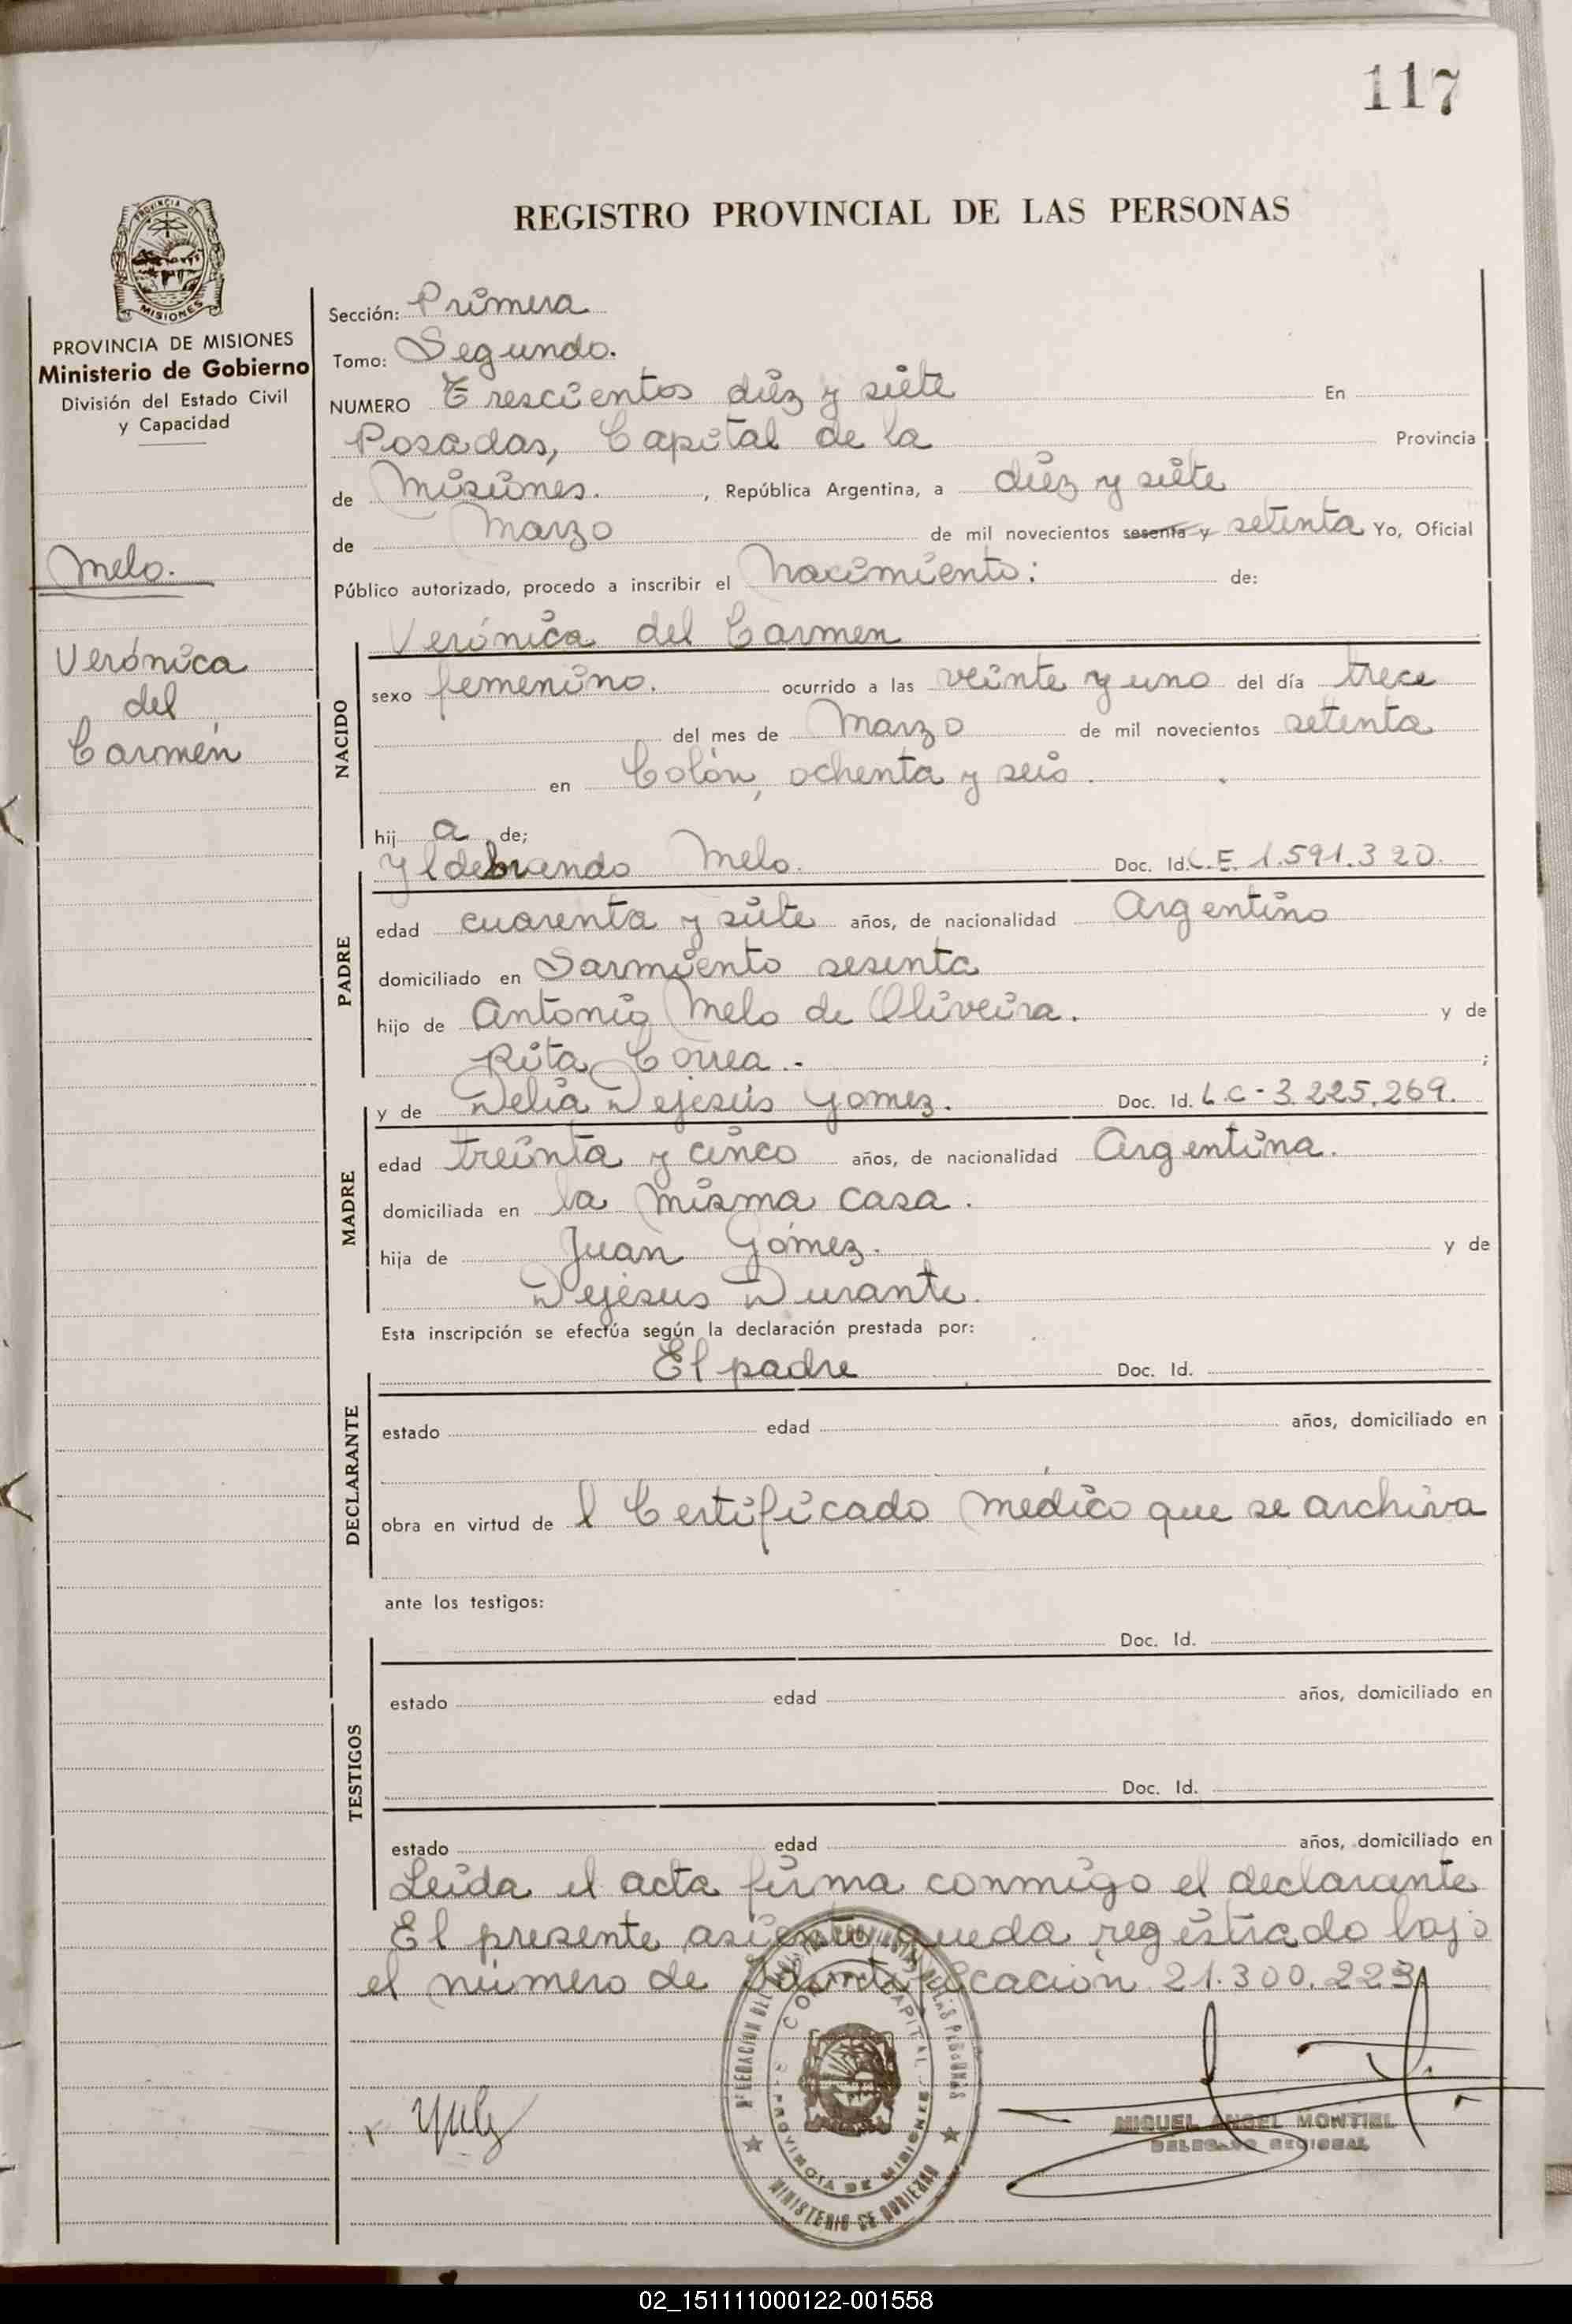 117
REGISTRO PROVINCIAL DE LAS PERSONAS
PROVINCIA DE MISIONES
Ministerio de Gobierno
División del Estado Civil
y Capacidad
Melo.
Verónica
del
Carmén
Sección: Primera
Tomo: Segundo.
NUMERO Trescientos diez y siete En
Posadas, Capital de la Provincia
de Misiones. , República Argentina, a diez y siete
de Marzo de mil novecientos sesenta y setenta Yo, Oficial
Público autorizado, procedo a inscribir el Nacimiento: de:
Verónica del Carmen
NACIDO
sexo femenino. ocurrido a las veinte y uno del día trece
del mes de Marzo de mil novecientos setenta
en Colón, ochenta y seis.
hij a de;
Yldebrando Melo. Doc. Id. L.E. 1.591.320.
PADRE
edad cuarenta y siete años, de nacionalidad Argentino
domiciliado en Sarmiento sesenta
hijo de Antonio Melo de Oliveira. y de
Rita Correa.- ;
y de Delia Dejesús Gomez. Doc. Id. L.C-3.225.269.
MADRE
edad treinta y cinco años, de nacionalidad Argentina.
domiciliada en la misma casa.
hija de Juan Gómez. y de
Dejesus Durante.
Esta inscripción se efectúa según la declaración prestada por:
El padre Doc. Id.
DECLARANTE
estado edad años, domiciliado en
obra en virtud de l Certificado Medico que se archiva
ante los testigos:
Doc. Id.
TESTIGOS
estado edad años, domiciliado en
Doc. Id.
estado edad años, domiciliado en
Leida el acta firma conmigo el declarante
El presente asiento queda registrado bajo
el número de Identificación 21.300.223
MIGUEL ANGEL MONTIEL
DELEGADO REGIONAL
PROVINCIA DE MISIONES
MINISTERIO DE GOBIERNO
02_151111000122-001558